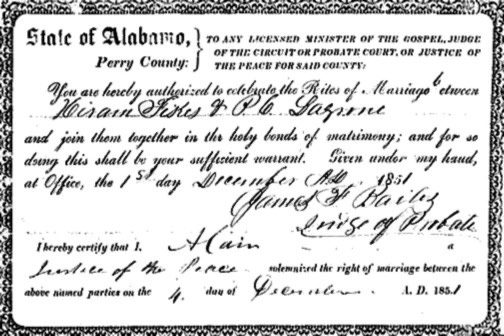 State of Alabama,
Perry County:
TO ANY LICENSED MINISTER OF THE GOSPEL, JUDGE
OF THE CIRCUIT OR PROBATE COURT, OR JUSTICE OF
THE PEACE FOR SAID COUNTY:
You are hereby authorized to celebrate the Rites of Marriage between
Hiram Fikes & P. C. Lagrone
and join them together in the holy bonds of matrimony; and for so
doing this shall be your sufficient warrant. Given under my hand,
at Office, the 1st day December A.D. 1851
James F Bailey
Judge of Probate
I hereby certify that I, A Cain a
Justice of the Peace solemnized the right of marriage between the
above named parties on the 4 day of December A. D. 1851